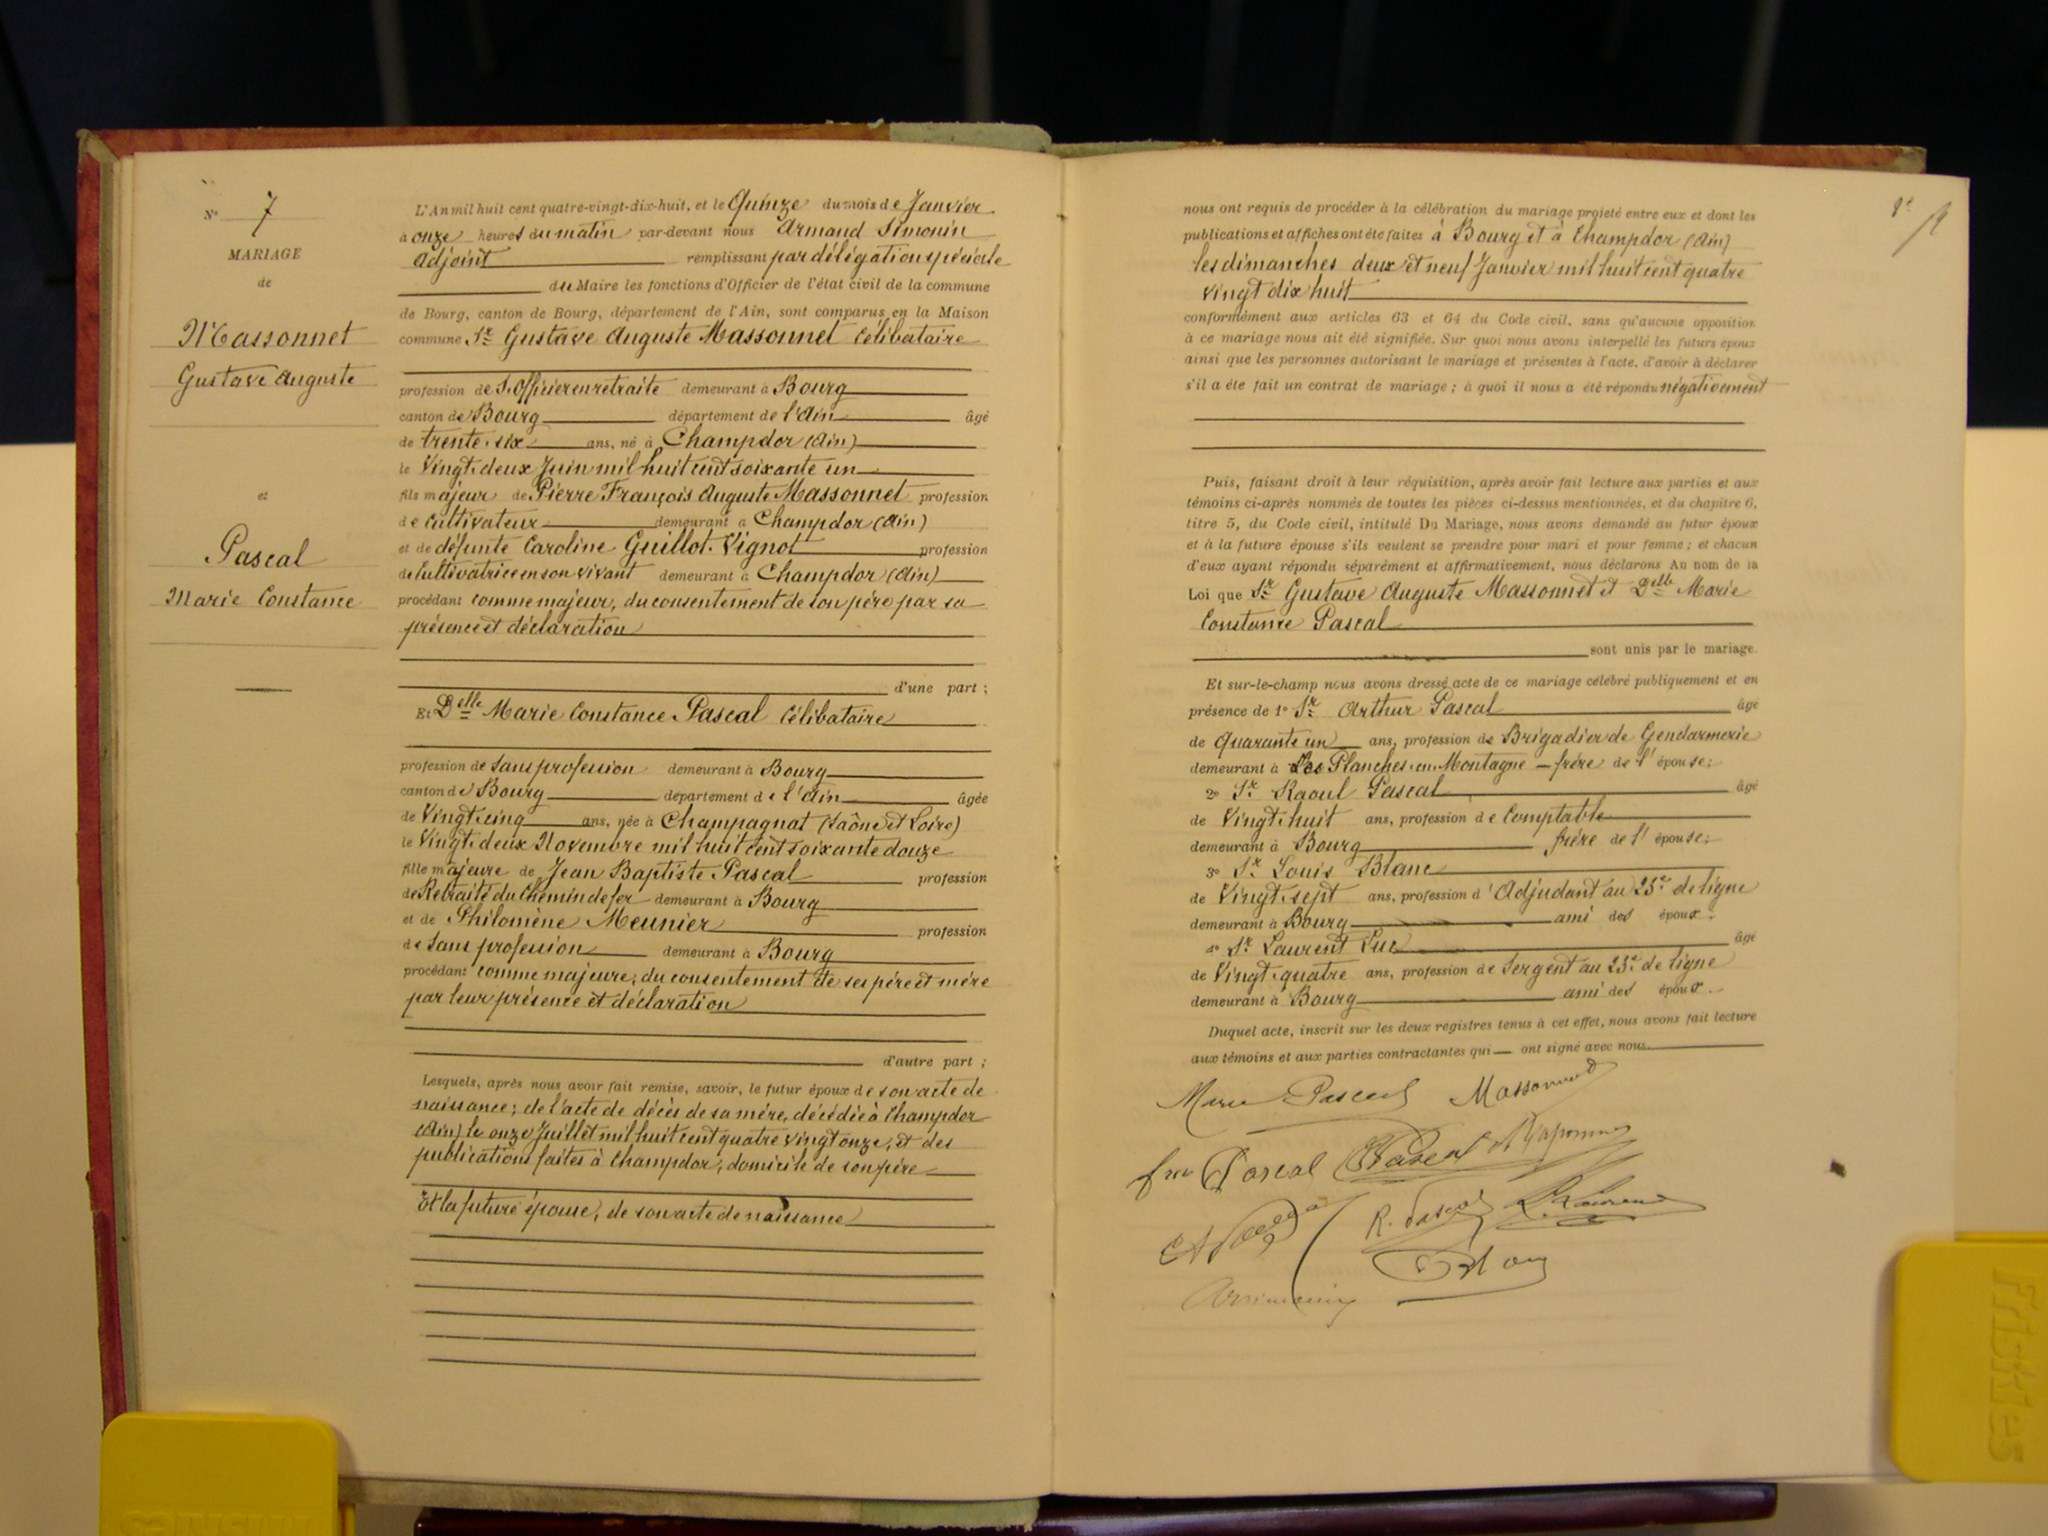 N° 7
MARIAGE
de
Massonnet
Gustave Auguste
et
Pascal
Marie Constance
L'An mil huit cent quatre-vingt-dix-huit, et le Quinze du mois de Janvier
à onze heures du matin par-devant nous Armand Simonin
Adjoint remplissant par délégation spéciale
du Maire les fonctions d'Officier de l'état civil de la commune
de Bourg, canton de Bourg, département de l'Ain, sont comparus en la Maison
commune Sr Gustave Auguste Massonnet Célibataire
profession de S. Officier en retraite demeurant à Bourg
canton de Bourg département de l'Ain âgé
de trente-six ans, né à Champdor (Ain)
le Vingt-deux Juin mil huit cent soixante un
fils majeur de Pierre François Auguste Massonnet profession
de cultivateur demeurant à Champdor (Ain)
et de défunte Caroline Guillot-Vignot profession
de Cultivatrice en son vivant demeurant à Champdor (Ain)
procédant comme majeur, du consentement de son père par sa
présence et déclaration
d'une part ;
Et Delle Marie Constance Pascal Célibataire
profession de Sans profession demeurant à Bourg
canton de Bourg département de l'Ain âgée
de Vingt-cinq ans, née à Champagnat (Saône et Loire)
le Vingt-deux Novembre mil huit cent soixante douze
fille majeure de Jean Baptiste Pascal profession
de Retraité du Chemin de fer demeurant à Bourg
et de Philomène Meunier profession
de Sans profession demeurant à Bourg
procédant comme majeure, du consentement de ses père et mère
par leur présence et déclaration
d'autre part ;
Lesquels, après nous avoir fait remise, savoir, le futur époux de son acte de
naissance; de l'acte de décès de sa mère, décédée à Champdor
(Ain) le onze Juillet mil huit cent quatre vingt onze, et des
publications faites à Champdor, domicile de son père
Et la future épouse, de son acte de naissance
nous ont requis de procéder à la célébration du mariage projeté entre eux et dont les
publications et affiches ont été faites à Bourg et à Champdor (Ain)
les dimanches deux et neuf Janvier mil huit cent quatre
vingt dix huit
conformément aux articles 63 et 64 du Code civil, sans qu'aucune opposition
à ce mariage nous ait été signifiée. Sur quoi nous avons interpellé les futurs époux
ainsi que les personnes autorisant le mariage et présentes à l'acte, d'avoir à déclarer
s'il a été fait un contrat de mariage ; à quoi il nous a été répondu négativement
Puis, faisant droit à leur réquisition, après avoir fait lecture aux parties et aux
témoins ci-après nommés de toutes les pièces ci-dessus mentionnées, et du chapitre 6,
titre 5, du Code civil, intitulé Du Mariage, nous avons demandé au futur époux
et à la future épouse s'ils veulent se prendre pour mari et pour femme ; et chacun
d'eux ayant répondu séparément et affirmativement, nous déclarons Au nom de la
Loi que Sr Gustave Auguste Massonnet et Delle Marie
Constance Pascal
sont unis par le mariage.
Et sur-le-champ nous avons dressé acte de ce mariage célébré publiquement et en
présence de 1° Sr Arthur Pascal âgé
de Quarante un ans, profession de Brigadier de Gendarmerie
demeurant à Les Planches-en-Montagne - frère de l'épouse;
2° Sr Raoul Pascal âgé
de Vingt-huit ans, profession de Comptable
demeurant à Bourg frère de l'épouse;
3° Sr Louis Blanc
de Vingt-sept ans, profession d'Adjudant au 23e de ligne
demeurant à Bourg ami des époux.
4° Sr Laurent Luc âgé
de Vingt-quatre ans, profession de Sergent au 23e de ligne
demeurant à Bourg ami des époux.
Duquel acte, inscrit sur les deux registres tenus à cet effet, nous avons fait lecture
aux témoins et aux parties contractantes qui ont signé avec nous.
Marie Pascal Massonnet
Pascal Pascal
R. Pascal